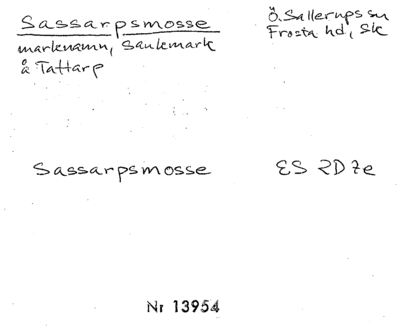 Sassarpsmosse
Ö. Sallerups sn
marknamn, sankmark
Frosta hd, Sk
å Tattarp
Sassarpsmosse
ES 2D7e
Nr 13954